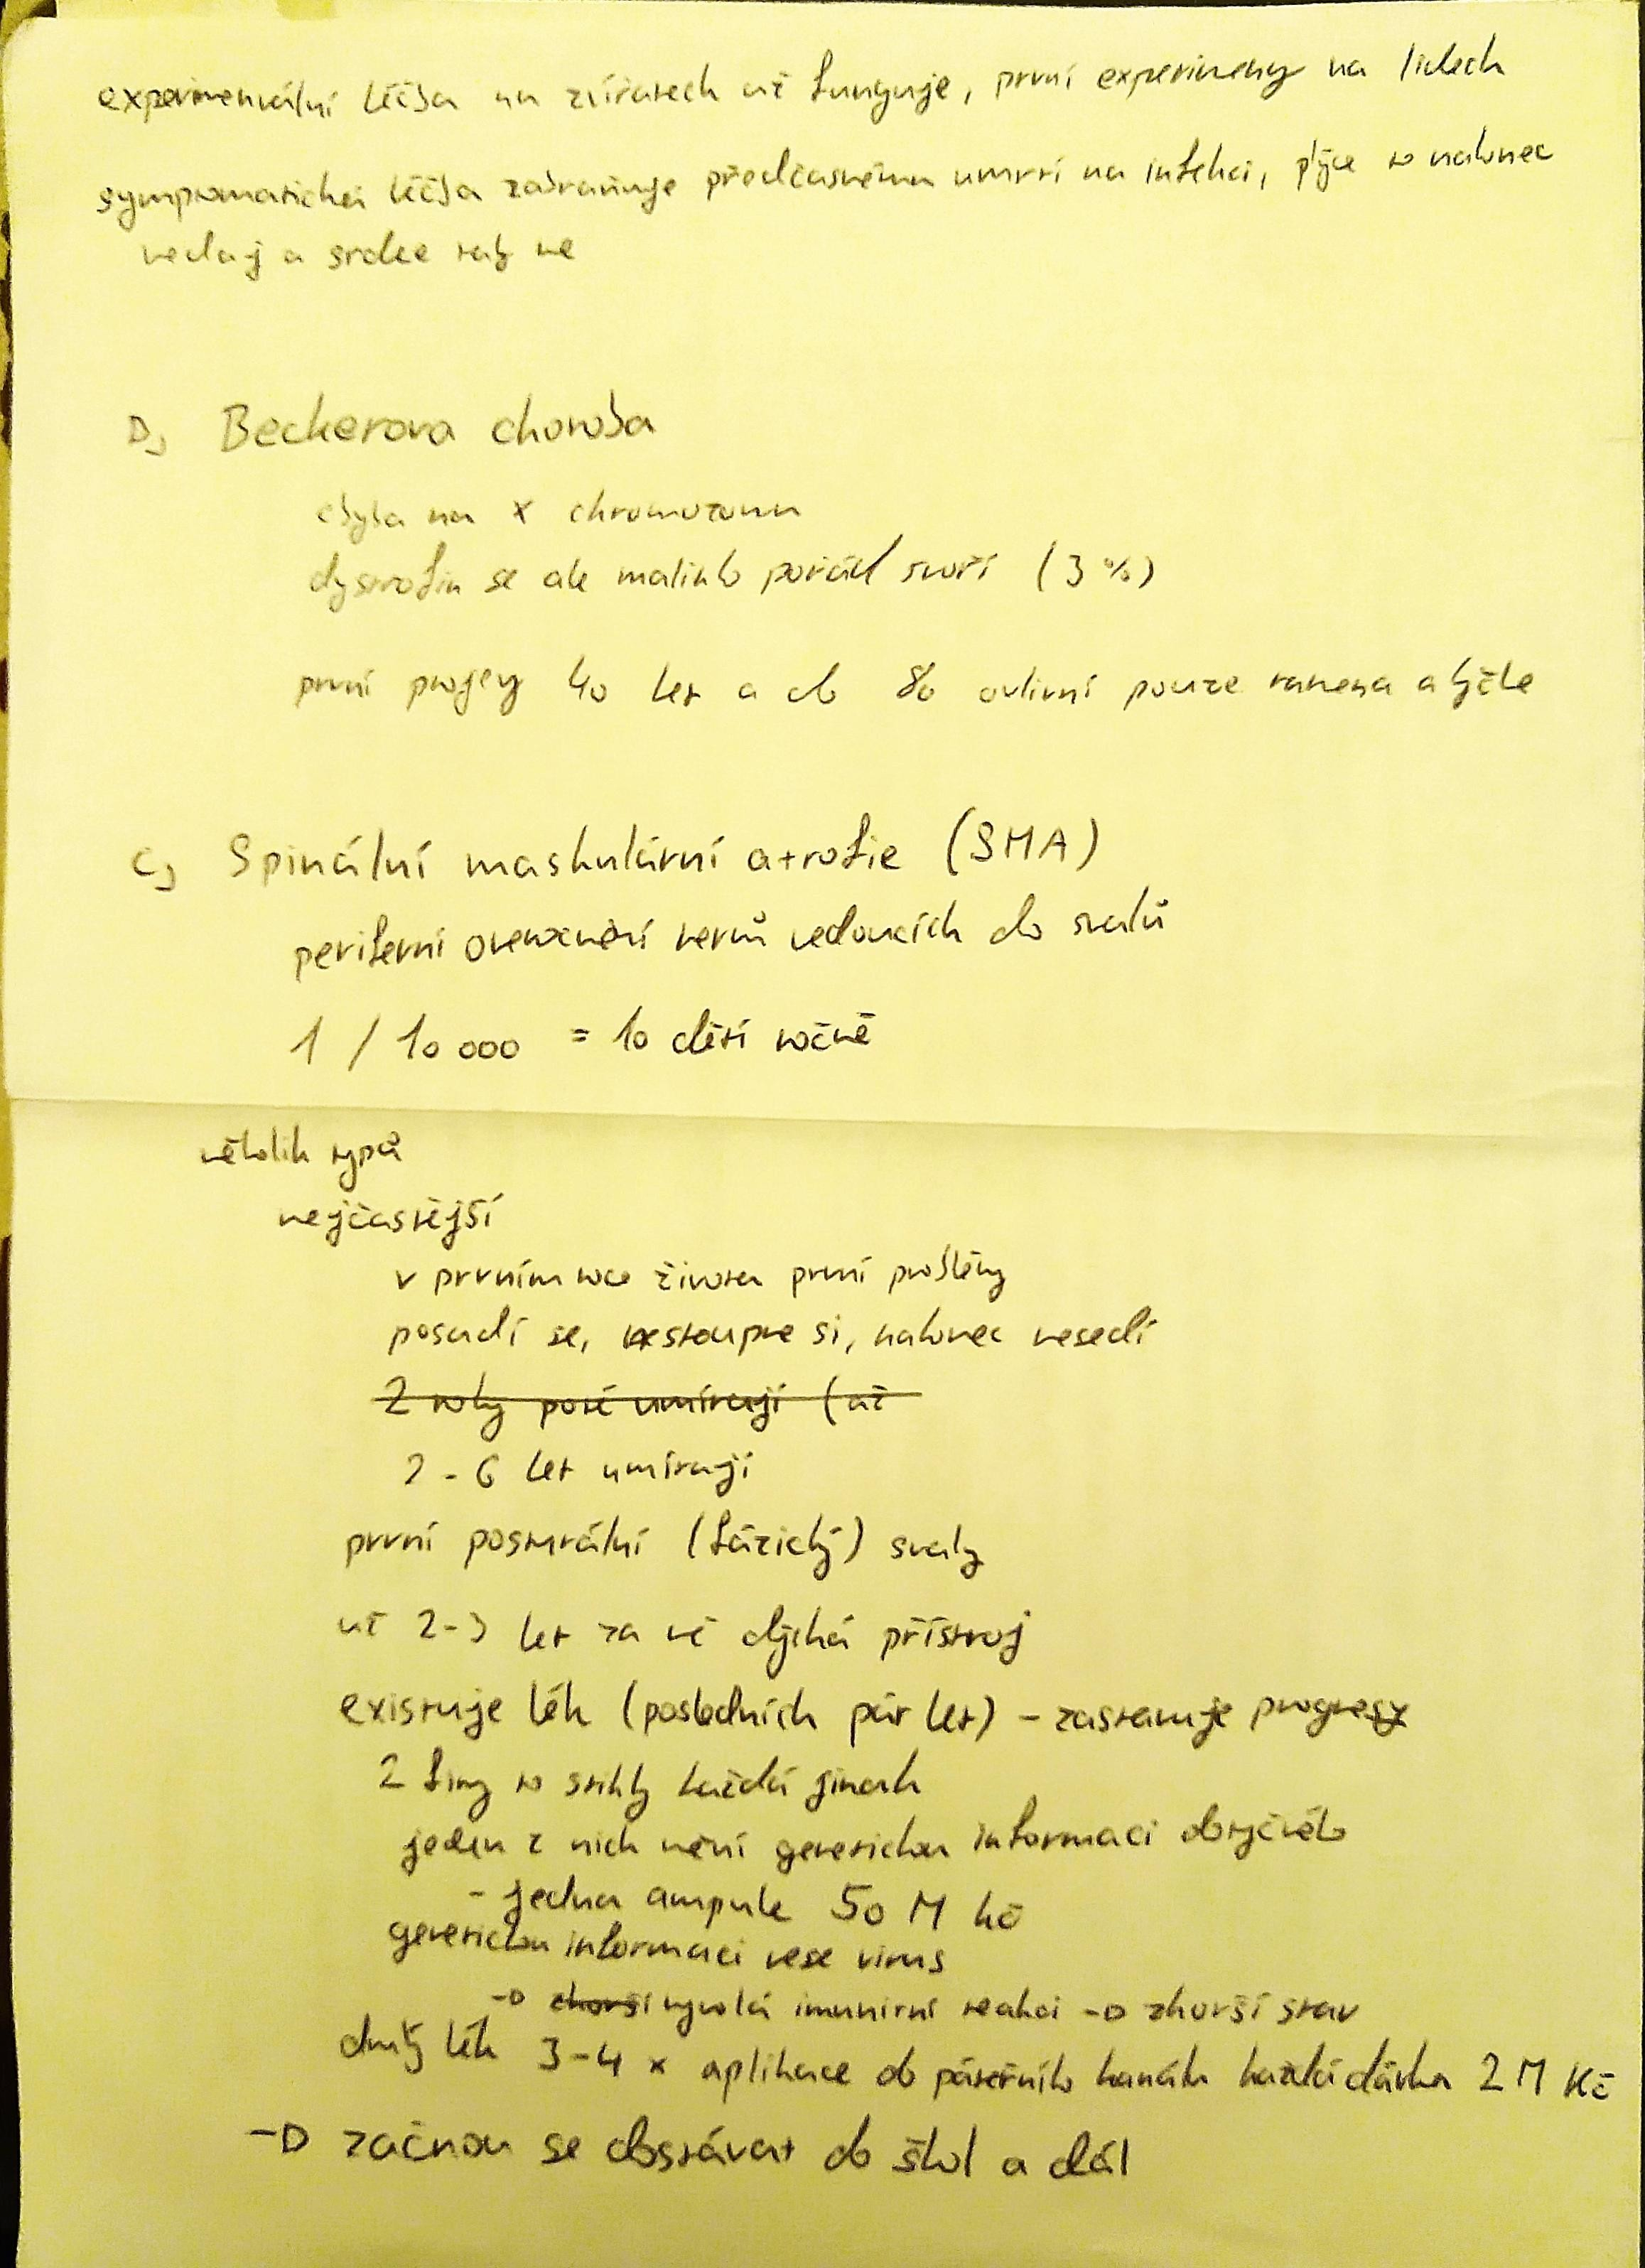 experimentální léčba na zvířatech už funguje, první experimeny na lidech
symptomatická léčba zabraňuje předčasnému umrtí na infekci, plíce to nakonec
nedaj a srdce taky ne
D, Beckerova choroba
chyba na X chromozomu
dystrofin se ale malinko pořád tvoří (3 %)
první projevy 40 let a do 80 ovlivní pouze ramena a lýtke
C, Spinální maskulární atrofie (SMA)
periferní onemcnění nervů vedoucích do svalů
1 / 10 000 = 10 dětí ročně
několik typů
nejčastější
v prvním roce života první problémy
posadí se, nestoupne si, nakonec nesedí
2 roky poté umírají (až
2 - 6 let umírají
první posturální (fázický) svaly
už 2-3 let za ně dýchá přístroj
existuje lék (posledních pár let) - zastavuje progresy
2 firmy to stihly každá jinak
jeden z nich mění genetickou informaci dotyčného
- jedna ampule 50 M kč
genetickou informaci nese virus
-> zhorší vyvolá imunitní reakci -> zhorší stav
druhý lék 3-4 x aplikace do páteřního kanálu každá dávka 2 M Kč
-> začnou se dostávat do škol a dál